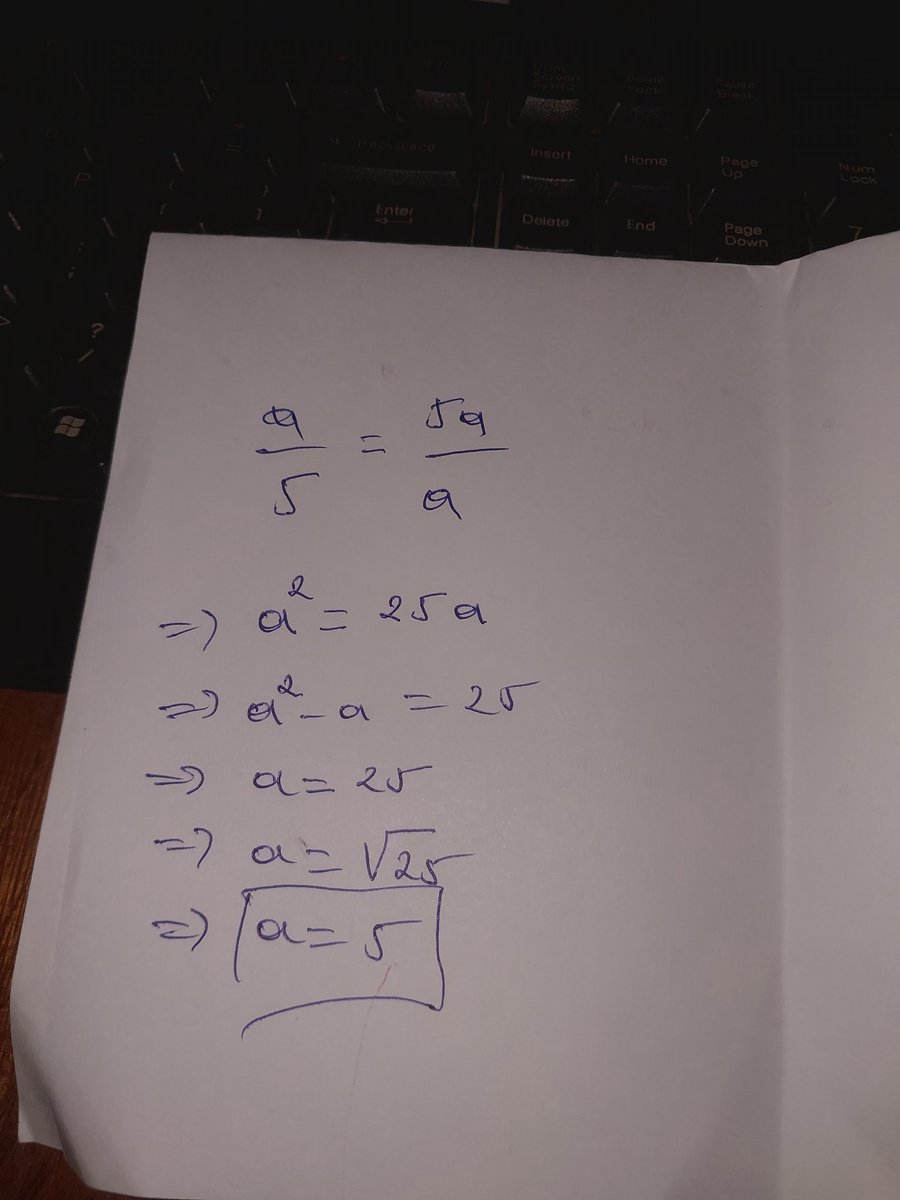 Print Screen SysRq Scroll Lock Pause Break
Backspace Insert Home Page Up Num Lock
P
Enter Delete End Page Down 7
?
a/5 = 5a/a
=> a² = 25a
=> a² - a = 25
=> a = 25
=> a = √25
=> a = 5